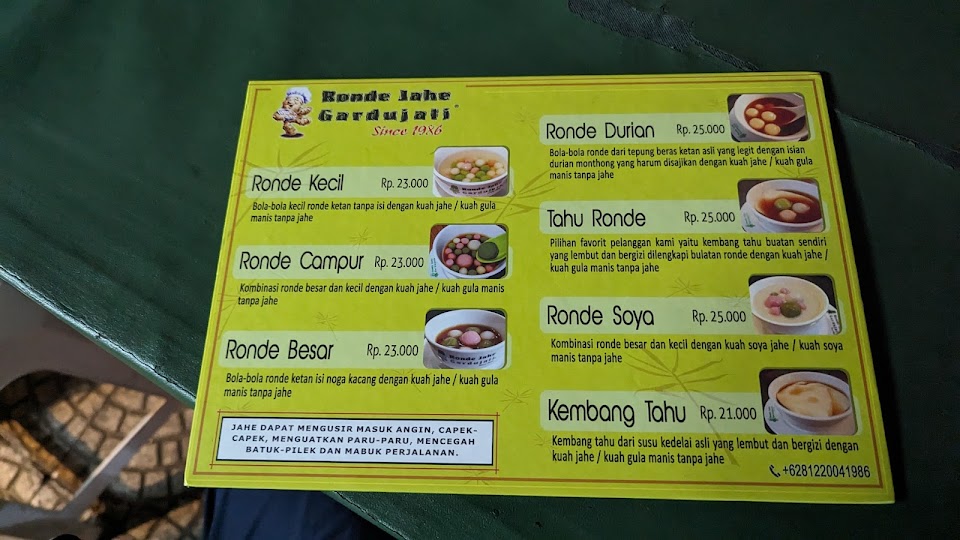 Ronde Jahe
Gardujati
Since 1986
Ronde Kecil Rp. 23.000
Bola-bola kecil ronde ketan tanpa isi dengan kuah jahe / kuah gula
manis tanpa jahe
Ronde Campur Rp. 23.000
Kombinasi ronde besar dan kecil dengan kuah jahe / kuah gula manis
tanpa jahe
Ronde Besar Rp. 23.000
Ronde Jahe
Bola-bola ronde ketan isi noga kacang dengan kuah jahe / kuah gula
manis tanpa jahe
JAHE DAPAT MENGUSIR MASUK ANGIN, CAPEK-
CAPEK, MENGUATKAN PARU-PARU, MENCEGAH
BATUK-PILEK DAN MABUK PERJALANAN.
Ronde Durian Rp. 25.000
Bola-bola ronde dari tepung beras ketan asli yang legit dengan isian
durian monthong yang harum disajikan dengan kuah jahe / kuah gula
manis tanpa jahe
Tahu Ronde Rp. 25.000
Pilihan favorit pelanggan kami yaitu kembang tahu buatan sendiri
yang lembut dan bergizi dilengkapi bulatan ronde dengan kuah jahe /
kuah gula manis tanpa jahe
Ronde Soya Rp. 25.000
Kombinasi ronde besar dan kecil dengan kuah soya jahe / kuah soya
manis tanpa jahe
Kembang Tahu Rp. 21.000
Kembang tahu dari susu kedelai asli yang lembut dan bergizi dengan
kuah jahe / kuah gula manis tanpa jahe
+6281220041986